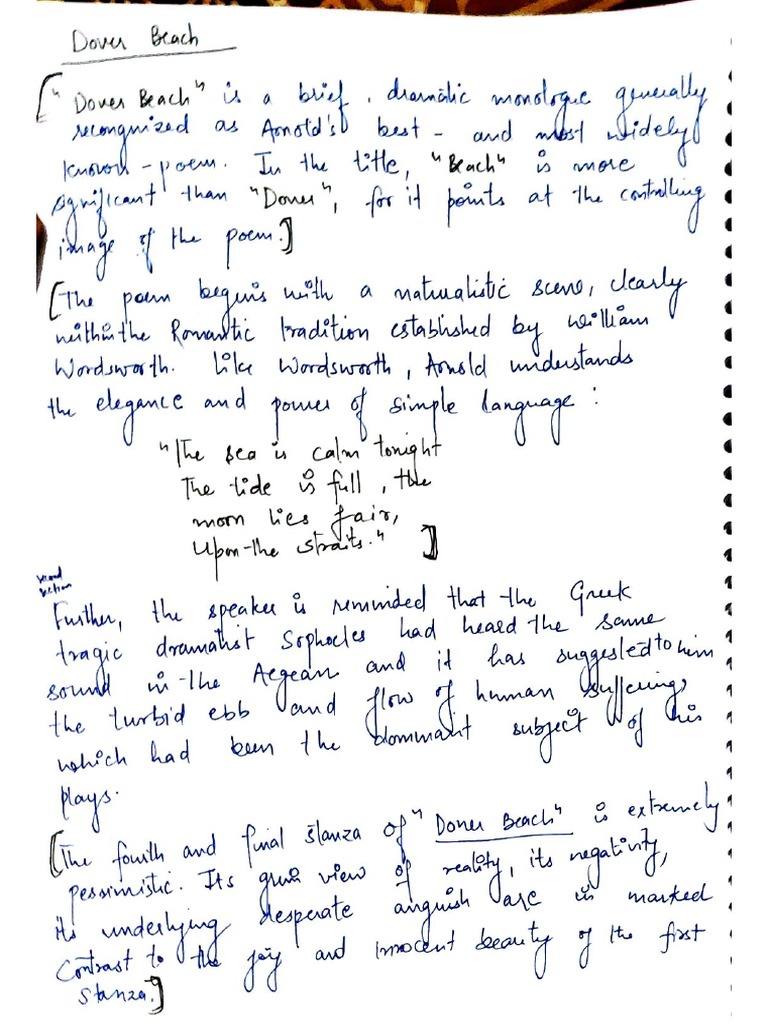 Dover Beach
["Dover Beach" is a brief, dramatic monologue generally
recongnized as Arnold's best - and most widely
known - poem. In the title, "Beach" is more
significant than "Dover", for it points at the controlling
image of the poem.]
[The poem begins with a naturalistic scene, clearly
within the Romantic tradition established by William
Wordsworth. Like Wordsworth, Arnold understands
the elegance and power of simple language:
"The sea is calm tonight
The tide is full, the
moon lies fair,
Upon the straits."]
Further, the speaker is reminded that the Greek
tragic dramatist Sophocles had heard the same
sound in the Aegean and it has suggested to him
the turbid ebb and flow of human suffering,
which had been the dominant subject of his
plays.
[The fourth and final stanza of "Dover Beach" is extremely
pessimistic. Its grim view of reality, its negativity,
its underlying desperate anguish are in marked
Contrast to the joy and innocent beauty of the first
stanza.]